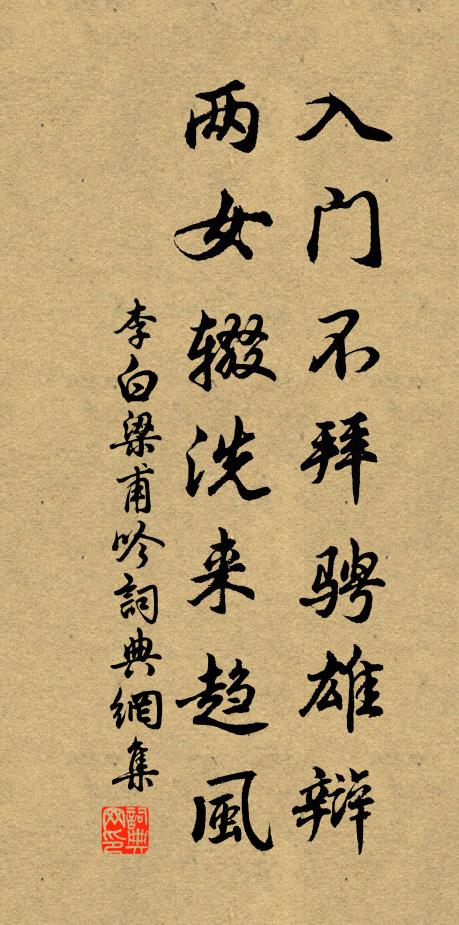 入门不拜骋雄辩
两女辍洗来趋風
李白梁甫吟詞典網集
詞典网印